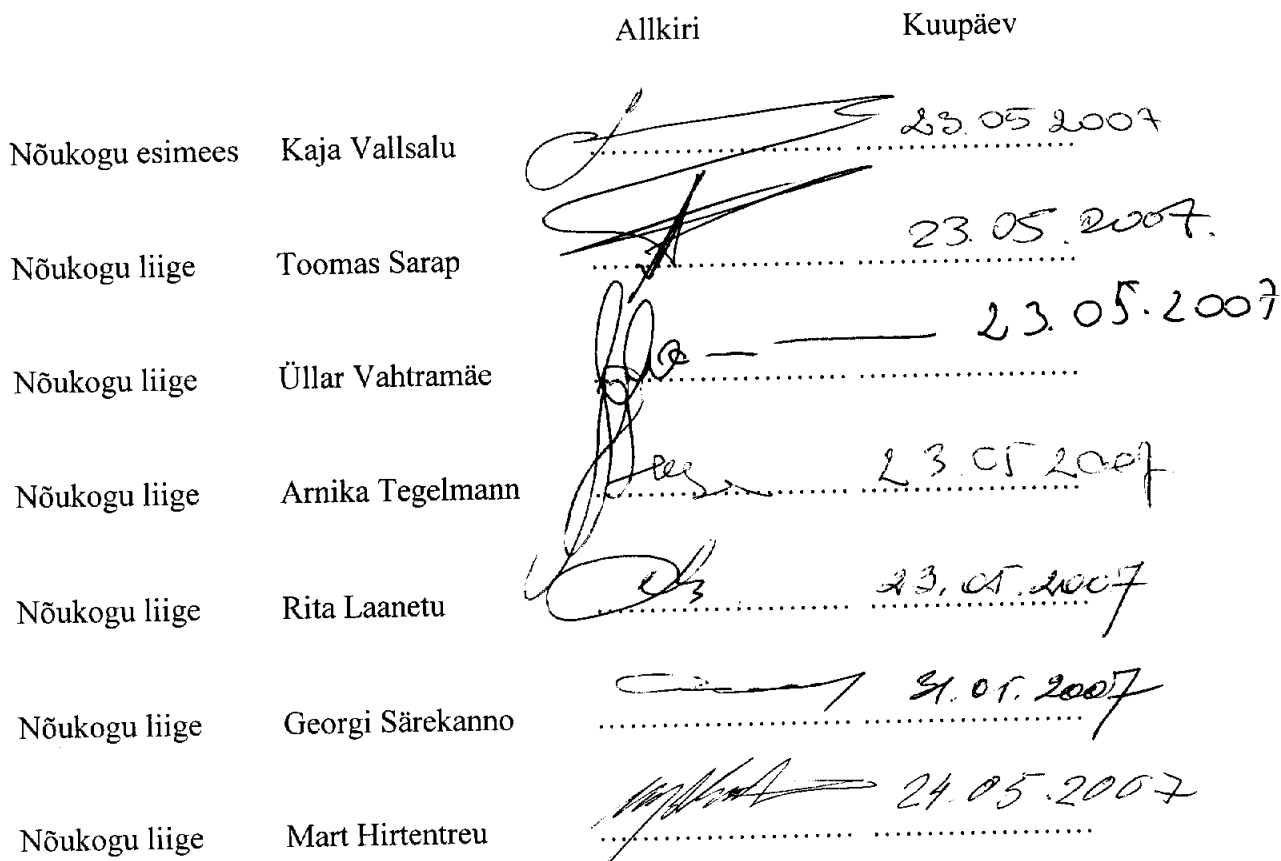 Allkiri Kuupäev
Nõukogu esimees Kaja Vallsalu 23.05 2007
Nõukogu liige Toomas Sarap 23.05.2007.
Nõukogu liige Üllar Vahtramäe 23.05.2007
Nõukogu liige Arnika Tegelmann 23.05 2007
Nõukogu liige Rita Laanetu 23.05.2007
Nõukogu liige Georgi Särekanno 31.05.2007
Nõukogu liige Mart Hirtentreu 24.05.2007